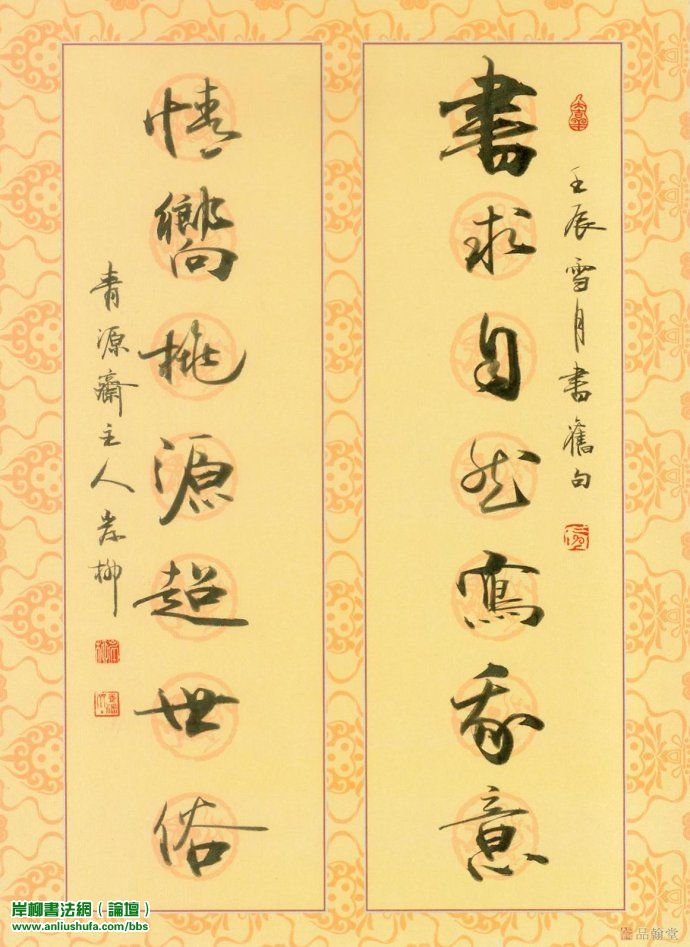 壬辰雪月書舊句
書求自然寫我意
情嚮桃源超世俗
青源齋主人岸柳
岸柳書法網（論壇）
www.anliushufa.com/bbs
品翰堂